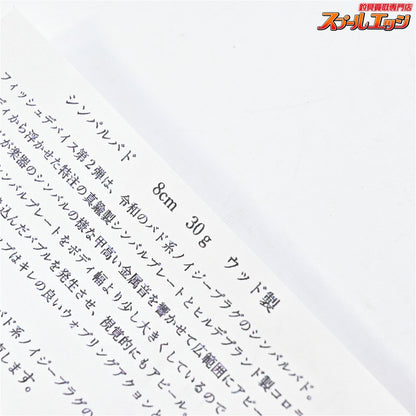 釣具買取専門店
スプールエッジ
シンバルバド 8cm 30g ウッド製
フィッシュデバイス第2弾は、令和のバド系ノイジープラグのシンバルバド。
ディから浮かせた特注の真鍮製シンバルプレートとヒルデブランド製コロ
が楽器のシンバルの様な甲高い金属音を響かせて広範囲にアピ
シンバルプレートをボディ幅より少し大きくしているので
込んだバブルを発生させ、視覚的にもアピール。
はキレの良いウォブリングアクションと
バド系ノイジープラグの
します。